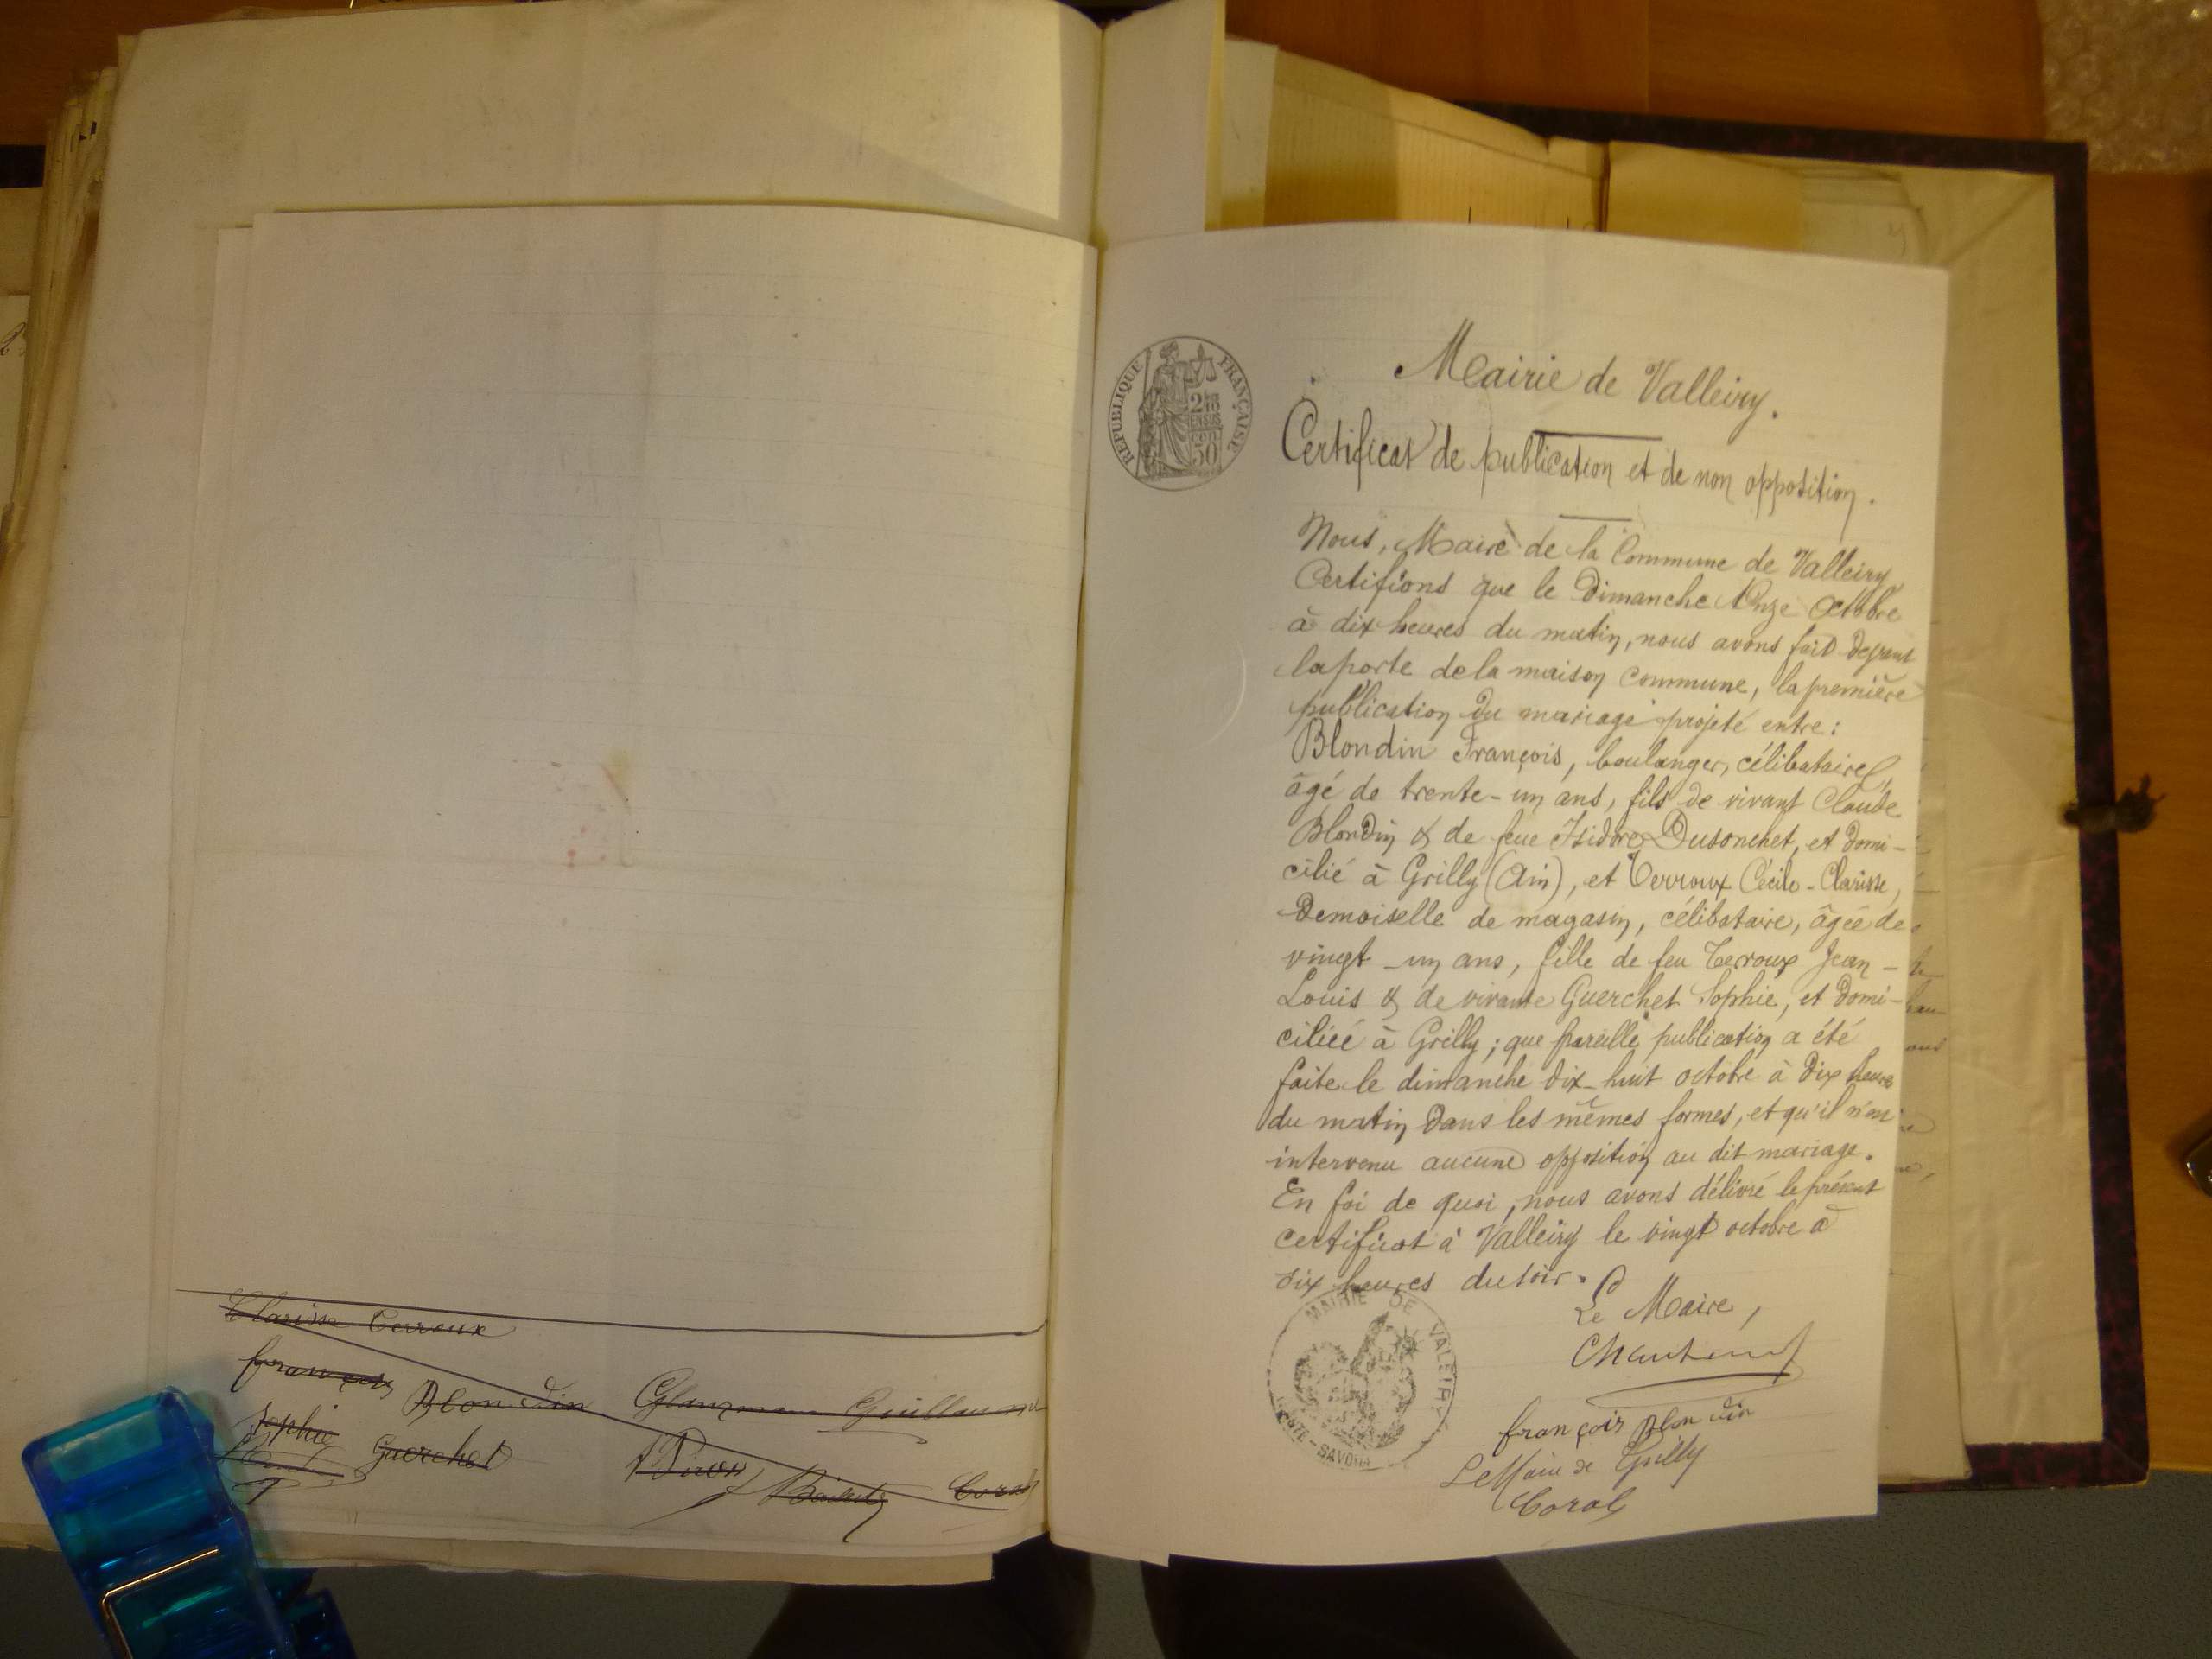 Clarisse Terroux
françois Blondin Glanzmann Guillaume
Sophie Guerchet
Coral
RÉPUBLIQUE FRANÇAISE
Mairie de Valleiry.
Certificat de publication et de non opposition.
Nous, Maire de la Commune de Valleiry
Certifions que le Dimanche Onze Octobre
à dix heures du matin, nous avons fait devant
la porte de la maison commune, la première
publication du mariage projeté entre :
Blondin François, boulanger, célibataire,
âgé de trente-un ans, fils de vivant Claude
Blondin & de feue Isidore Dusonchet, et domi-
cilié à Grilly (Ain), et Terroux Cécile-Clarisse,
Demoiselle de magasin, célibataire, âgée de
vingt-un ans, fille de feu Terroux Jean-
Louis & de vivante Guerchet Sophie, et domi-
ciliée à Grilly ; que pareille publication a été
faite le dimanche dix-huit octobre à dix heures
du matin dans les mêmes formes, et qu'il n'est
intervenu aucune opposition au dit mariage.
En foi de quoi, nous avons délivré le présent
certificat à Valleiry le vingt octobre à
six heures du soir.
Le Maire,
MAIRIE DE VALEIRY
HTE-SAVOIE
françois Blondin
Le Maire de Grilly
Coral